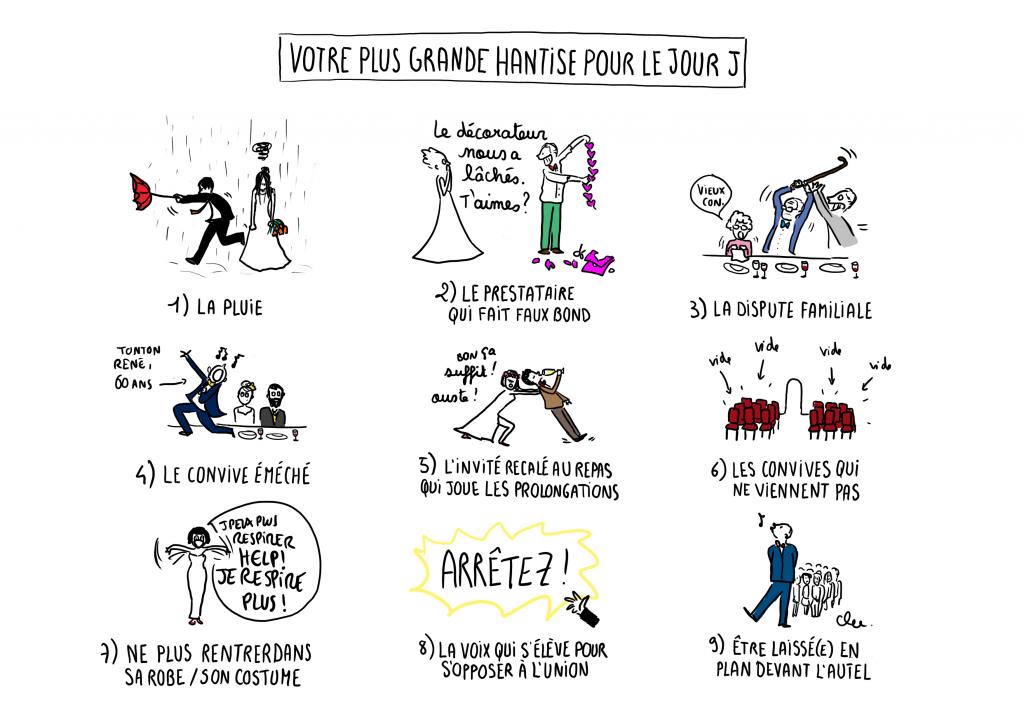 VOTRE PLUS GRANDE HANTISE POUR LE JOUR J
1) LA PLUIE
Le décorateur
nous a
lâchés.
T'aimes?
2) LE PRESTATAIRE
QUI FAIT FAUX BOND
VIEUX
CON.
3) LA DISPUTE FAMILIALE
TONTON
RENÉ,
60 ANS
4) LE CONVIVE ÉMÉCHÉ
BON ÇA
suffit!
ouste!
5) L'INVITÉ RECALÉ AU REPAS
QUI JOUE LES PROLONGATIONS
vide
vide
vide
vide
6) LES CONVIVES QUI
NE VIENNENT PAS
J'PEUX PLUS
RESPIRER
HELP!
JE RESPIRE
PLUS!
7) NE PLUS RENTRER DANS
SA ROBE / SON COSTUME
ARRÊTEZ!
8) LA VOIX QUI S'ÉLÈVE POUR
S'OPPOSER À L'UNION
9) ÊTRE LAISSÉ(E) EN
PLAN DEVANT L'AUTEL